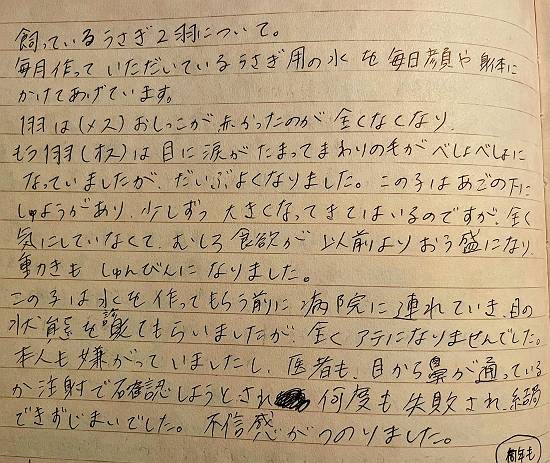 飼っているうさぎ2羽について。
毎月作っていただいているうさぎ用の水を毎日顔や身体に
かけてあげています。
1羽は(メス)おしっこが赤かったのが全くなくなり、
もう1羽(オス)は目に涙がたまってまわりの毛がべしょべしょに
なっていましたが、だいぶよくなりました。この子はあごの下に
しゅようがあり、少しずつ大きくなってきてはいるのですが、全く
気にしていなくて、むしろ食欲が以前よりおう盛になり、
動きもしゅんびんになりました。
この子は水を作ってもらう前に病院に連れていき、目の
状態を診てもらいましたが、全くアテになりませんでした。
本人も嫌がっていましたし、医者も、目から鼻が通っている
か注射で確認しようとされ 何度も失敗され、結局
できずじまいでした。不信感がつのりました。